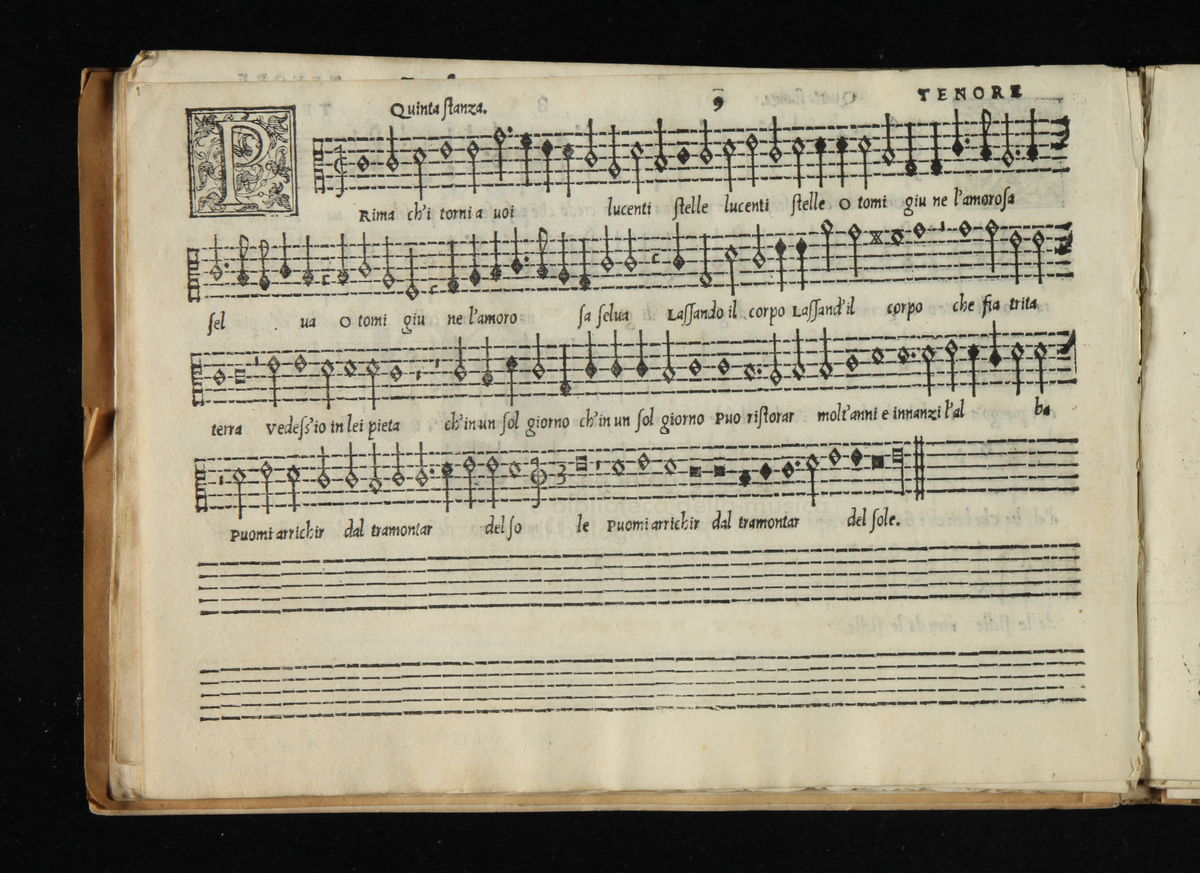 Quinta stanza. 9 TENORE
PRima ch'i torni a uoi lucenti stelle lucenti stelle O tomi giu ne l'amorosa
sel ua O tomi giu ne l'amoro sa selua Lassando il corpo Lassand'il corpo che fia trita
terra vedess'io in lei pieta ch'in un sol giorno ch'in un sol giorno Puo ristorar molt'anni e innanzi l'al ba
3
Puomi arrichir dal tramontar del so le Puomi arrichir dal tramontar del sole.